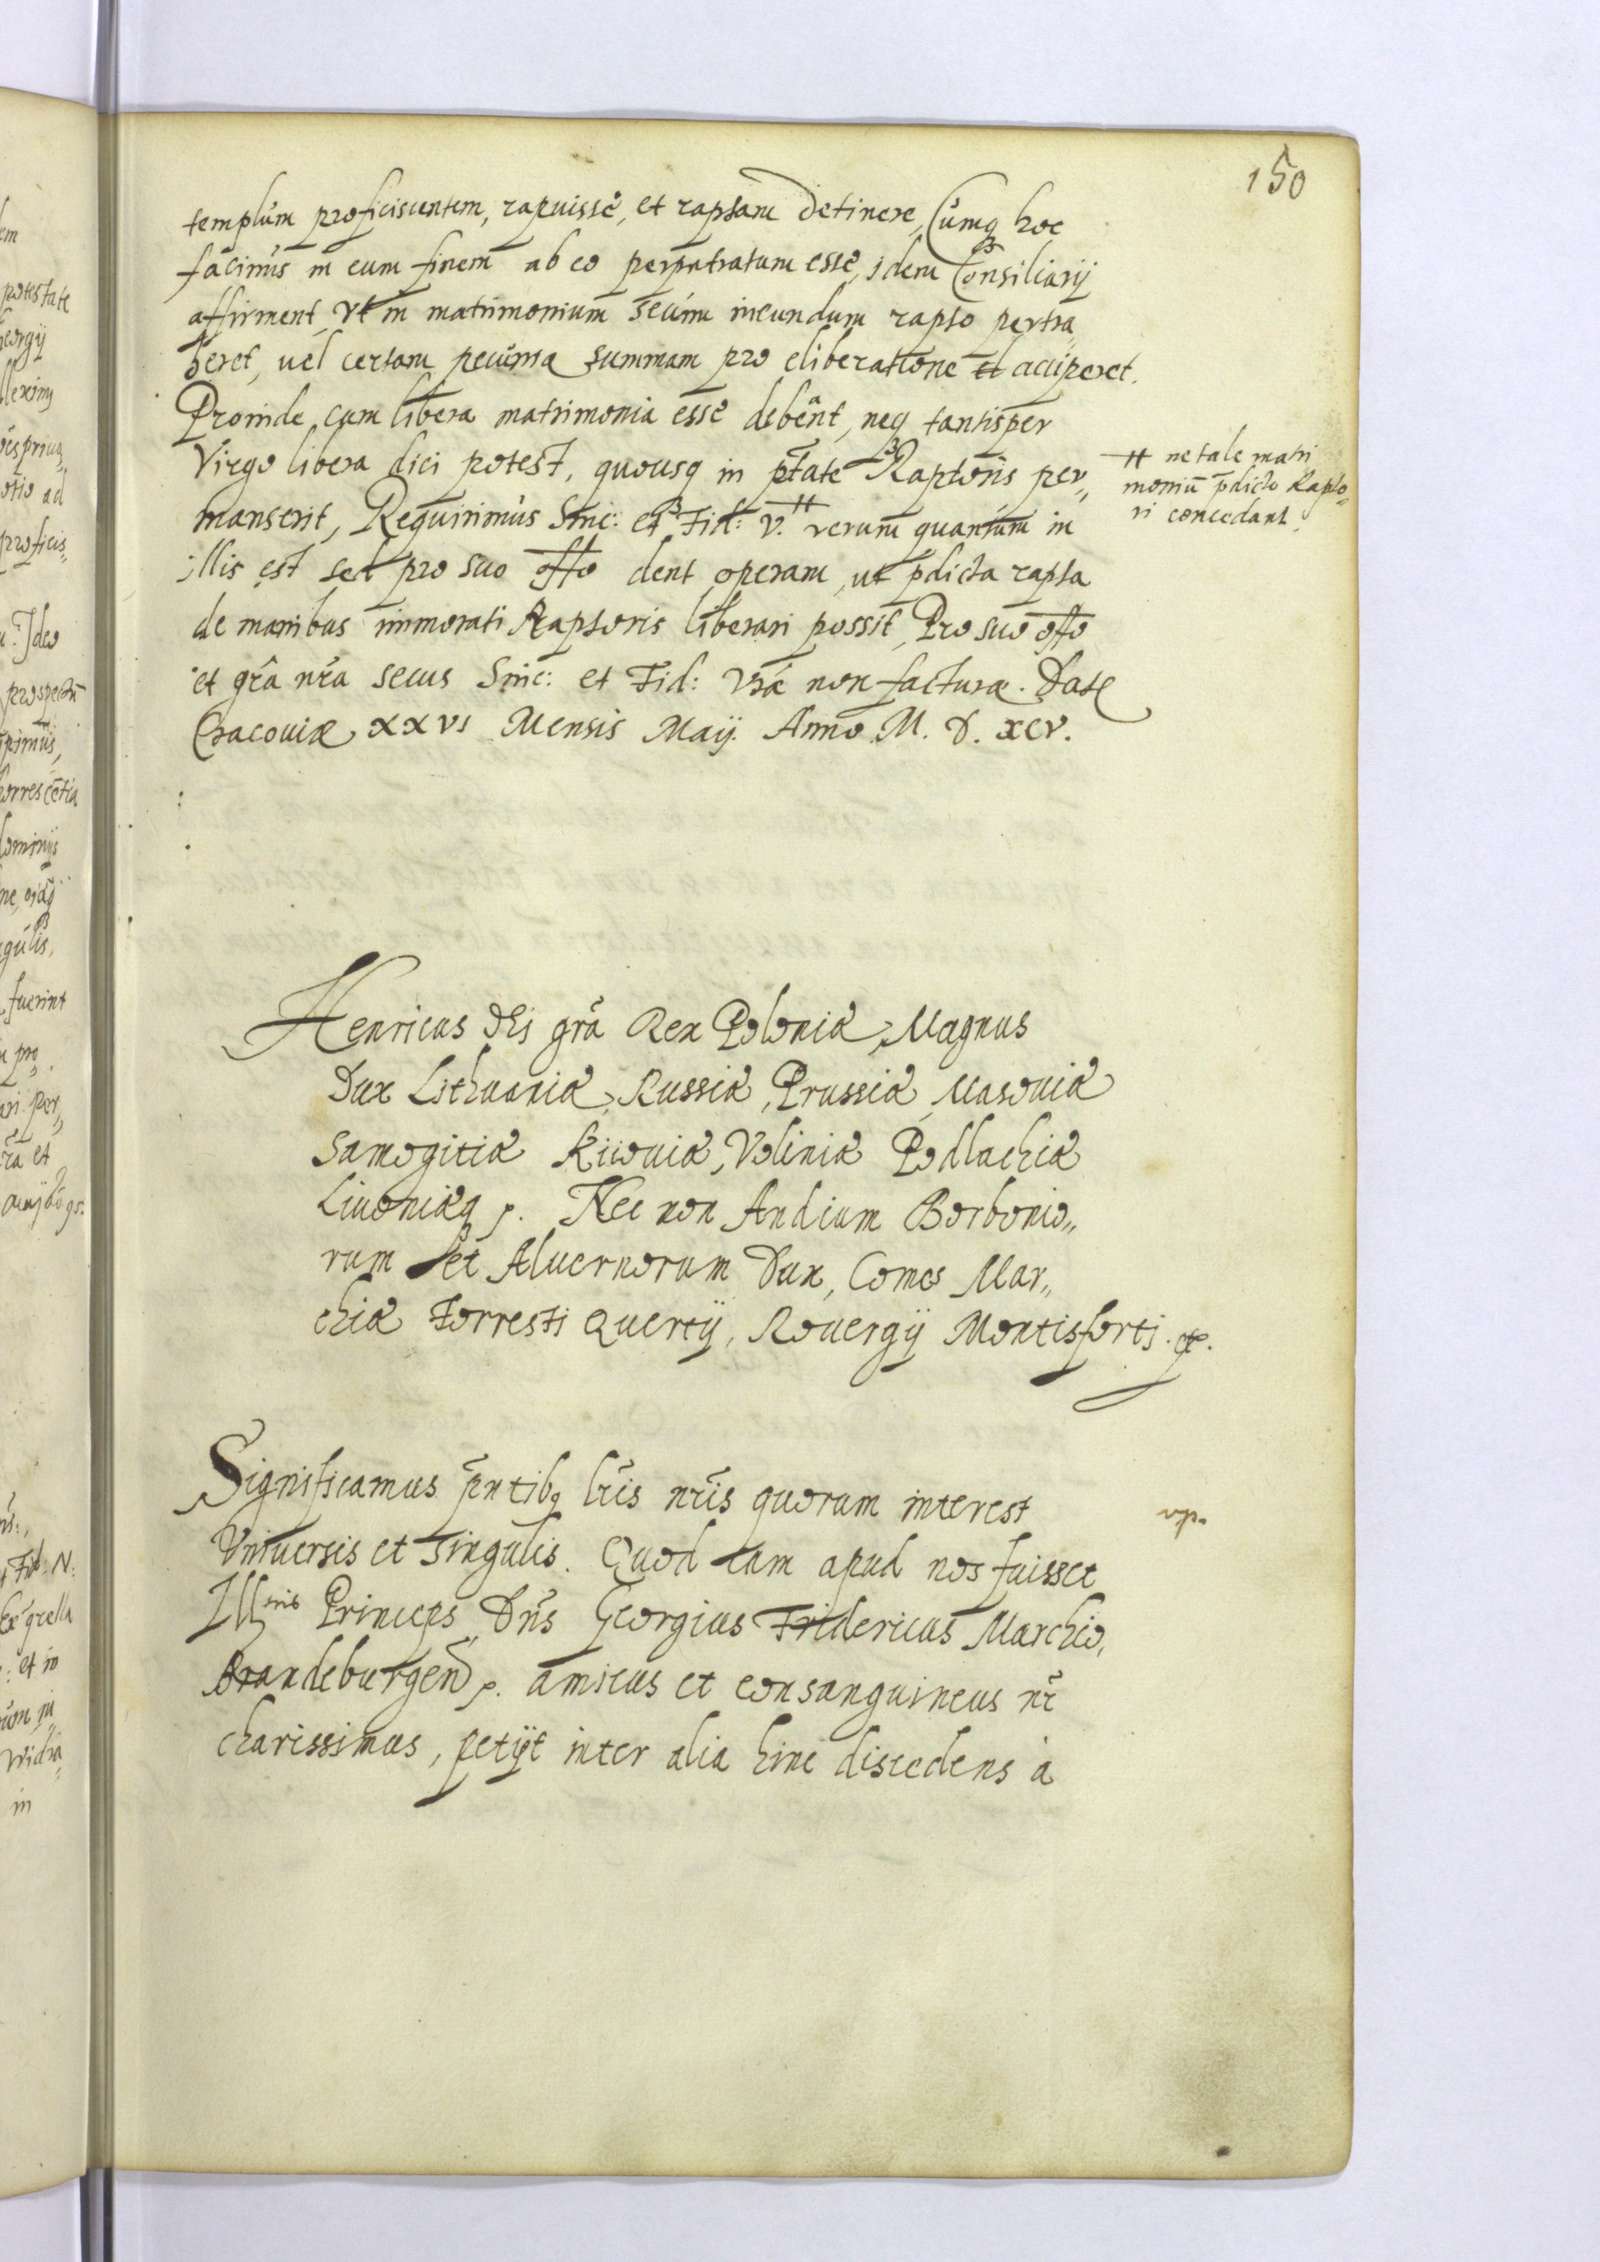 150
templum proficiscentem, rapuisse, et raptam detinere, Cumq hoc
facinus in eum finem ab eo perpetratum esse, idem Consiliarij
affirment, vt in matrimonium secum ineundum rapto pertra„
heret, uel certam pecuniæ summam pro eliberatione acciperet.
Proinde cum libera matrimonia esse debent, neq tantisper
Virgo libera dici potest, quousq in ptāte Raptoris per„
manserit, Requirimus Sinc: et Fid: V. # verum quantum in
illis est sed pro suo offo dent operam, ut pdicta rapta
de manibus immorati Raptoris liberari possit, Pro suo offo
et grā nrā secus Sinc: et Fid: Vræ non facturæ. Datæ
Cracouiæ xxvi Mensis Maij. Anno M. D. xcv.
# ne tale matri
moniū pdicto Rapto„
ri concedant
Henricus Dei grā Rex Poloniæ, Magnus
Dux Lithuaniæ, Russiæ, Prussiæ, Masouiæ
Samogitiæ Kiiouiæ, Voliniæ Podlachiæ
Liuoniæq p. Nec non Andium Borbonio„
rum et Aluernorum Dux, Comes Mar„
chiæ Forresti Quertij, Rouergij Montisfortj. etc.
Significamus pñtibq lr̄is nr̄is quorum interest
Vniuersis et singulis. Quod cum apud nos fuisset
Ill^mus Princeps Dn̄s Georgius Fridericus Marchio,
Brandeburgeñ p. amicus et consanguineus nr̄
charissimus, petijt inter alia hinc discedens à